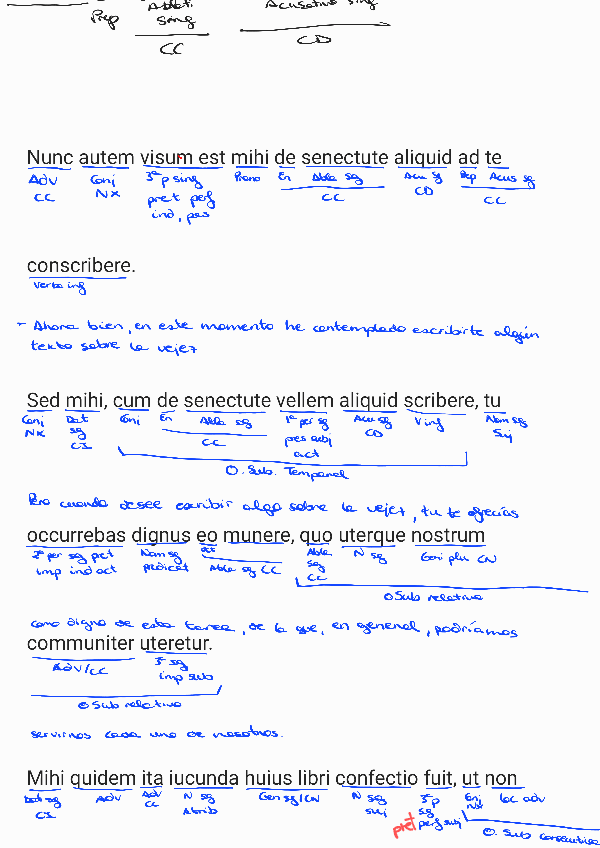 Prep Ablati Acusativo sing
sing
CC CD
Nunc autem visum est mihi de senectute aliquid ad te
ADV Conj 3ª p sing Prono En Abla sg Acu sg Prep Acus sg
CC NX pret perf CC CD CC
ind, pas
conscribere.
Verbo inf
- Ahora bien, en este momento he contemplado escribirte algún
texto sobre la vejez
Sed mihi, cum de senectute vellem aliquid scribere, tu
Conj Dat Conj En Abla sg 1ª per sg Acu sg V inf Nom sg
NX sg CC pas subj CD Suj
CI act
O. Sub. Temporal
Pero cuando desee escribir algo sobre la vejez, tu te ofrecías
occurrebas dignus eo munere, quo uterque nostrum
2ª per sg pret Nom sg det Abla N sg Geni plu CN
imp ind act predicat Abla sg CC sg
CC
O Sub relativo
como digno de esta tarea, de la que, en general, podríamos
communiter uteretur.
ADV/CC 3ª sg
imp sub
O Sub relativo
servirnos cada uno de nosotros.
Mihi quidem ita iucunda huius libri confectio fuit, ut non
Dat sg ADV ADV N sg Gen sg/CN N sg 3ª p Conj loc adv
CI CC Atrib suj sg NX
pret perf subj
O. Sub consecutiva